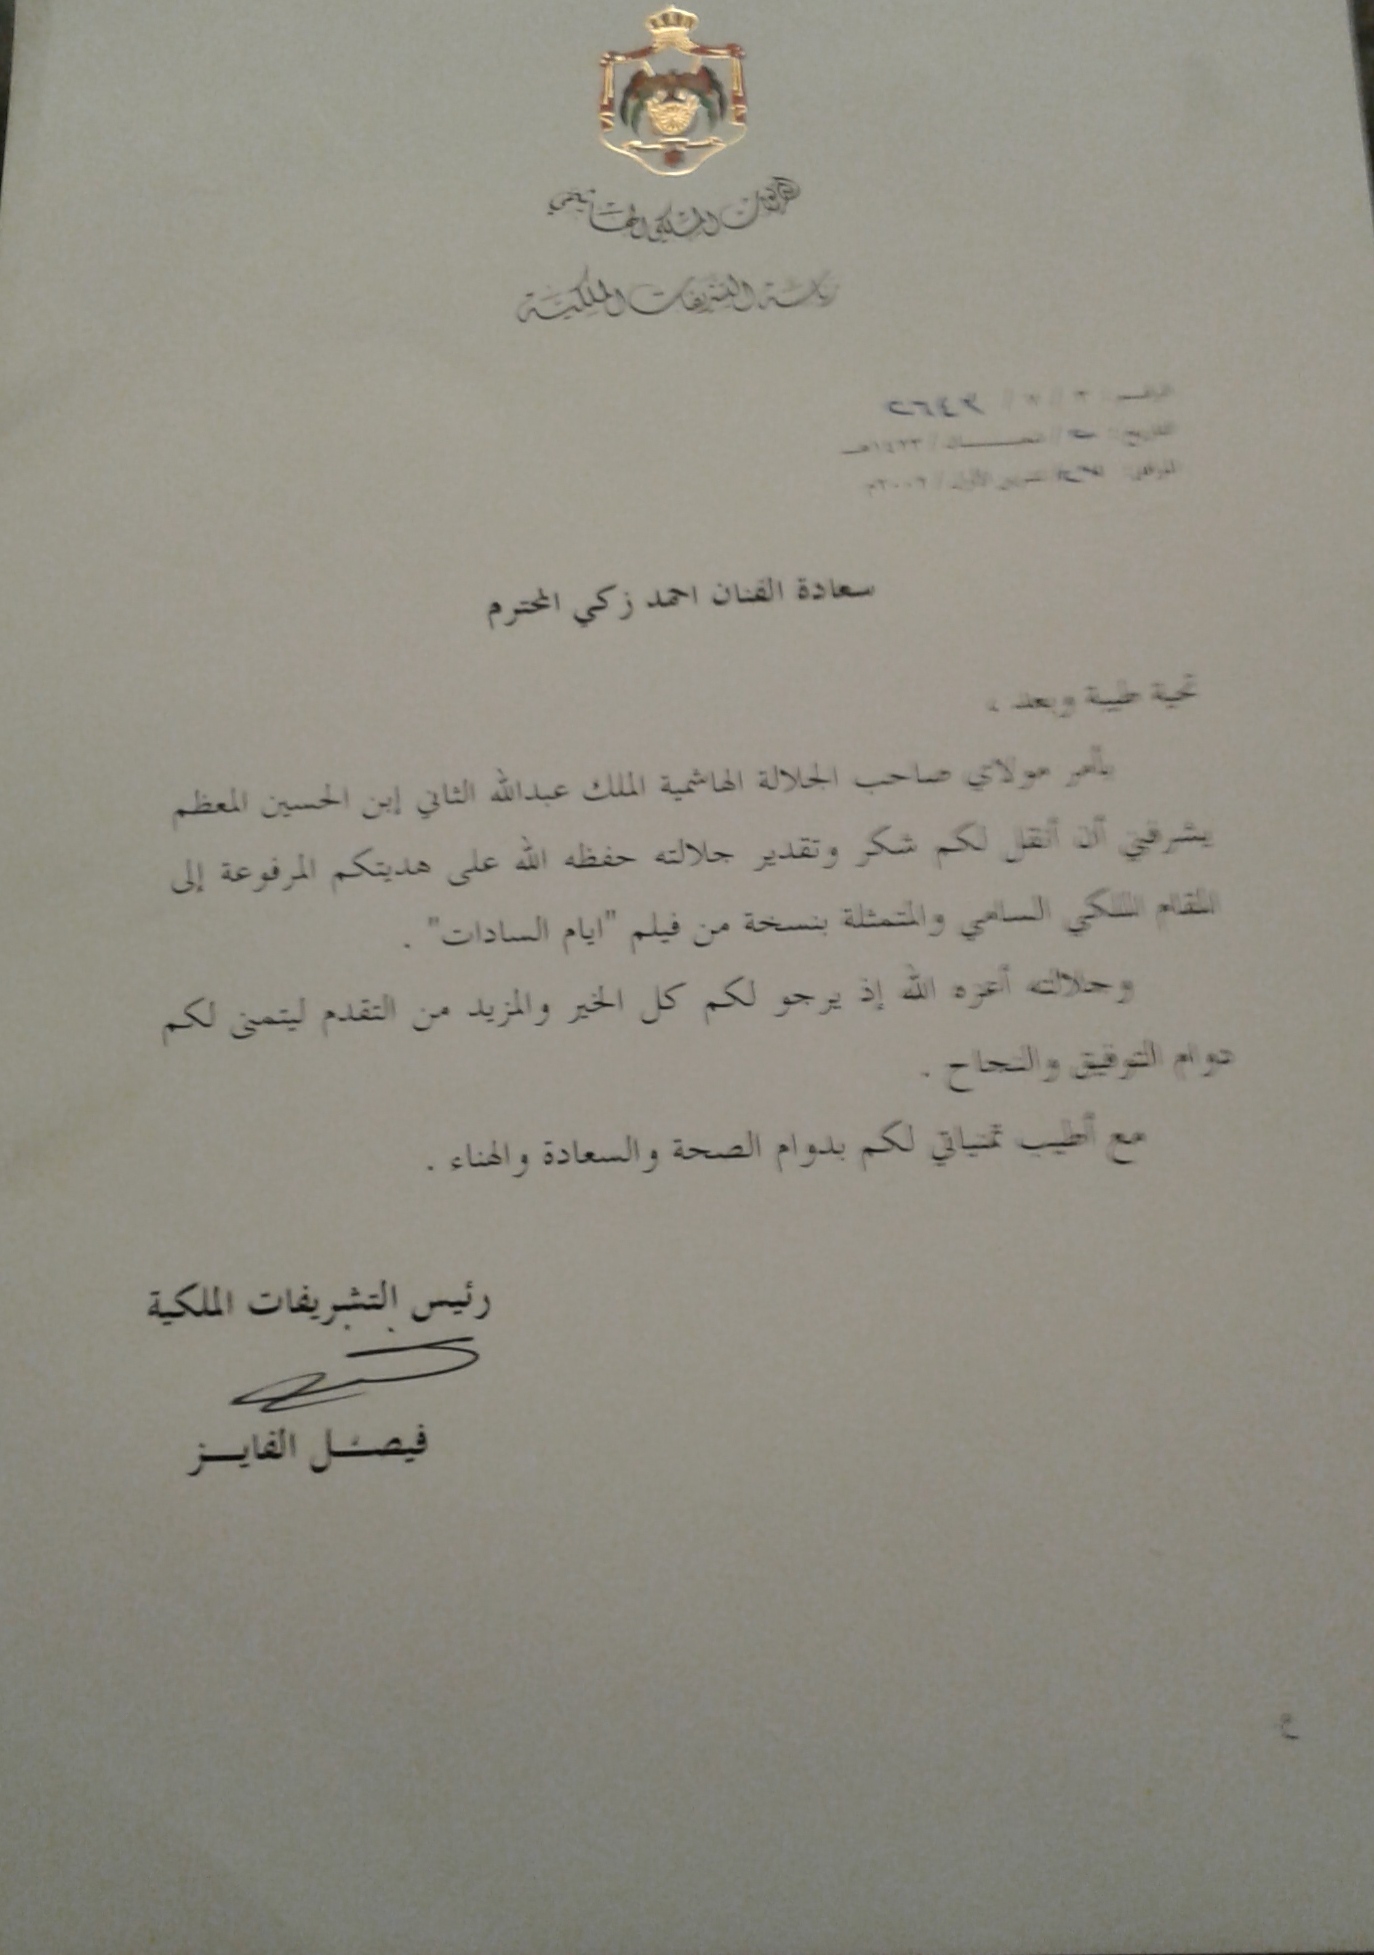 الديوان الملكي الهاشمي
رئاسة التشريفات الملكية
الرقم : ٣ / ٧ / ٢٦٤٣
التاريخ : / شعبـــان / ١٤٢٣هـ
الموافق : / تشرين الأول / ٢٠٠٢م
سعادة الفنان احمد زكي المحترم
تحية طيبة وبعد ،
بأمر مولاي صاحب الجلالة الهاشمية الملك عبدالله الثاني إبن الحسين المعظم
يشرفني أن أنقل لكم شكر وتقدير جلالته حفظه الله على هديتكم المرفوعة إلى
المقام الملكي السامي والمتمثلة بنسخة من فيلم "ايام السادات" .
وجلالته أعزه الله إذ يرجو لكم كل الخير والمزيد من التقدم ليتمنى لكم
دوام التوفيق والنجاح .
مع أطيب تمنياتي لكم بدوام الصحة والسعادة والهناء .
رئيس التشريفات الملكية
فيصـــل الفايـــز